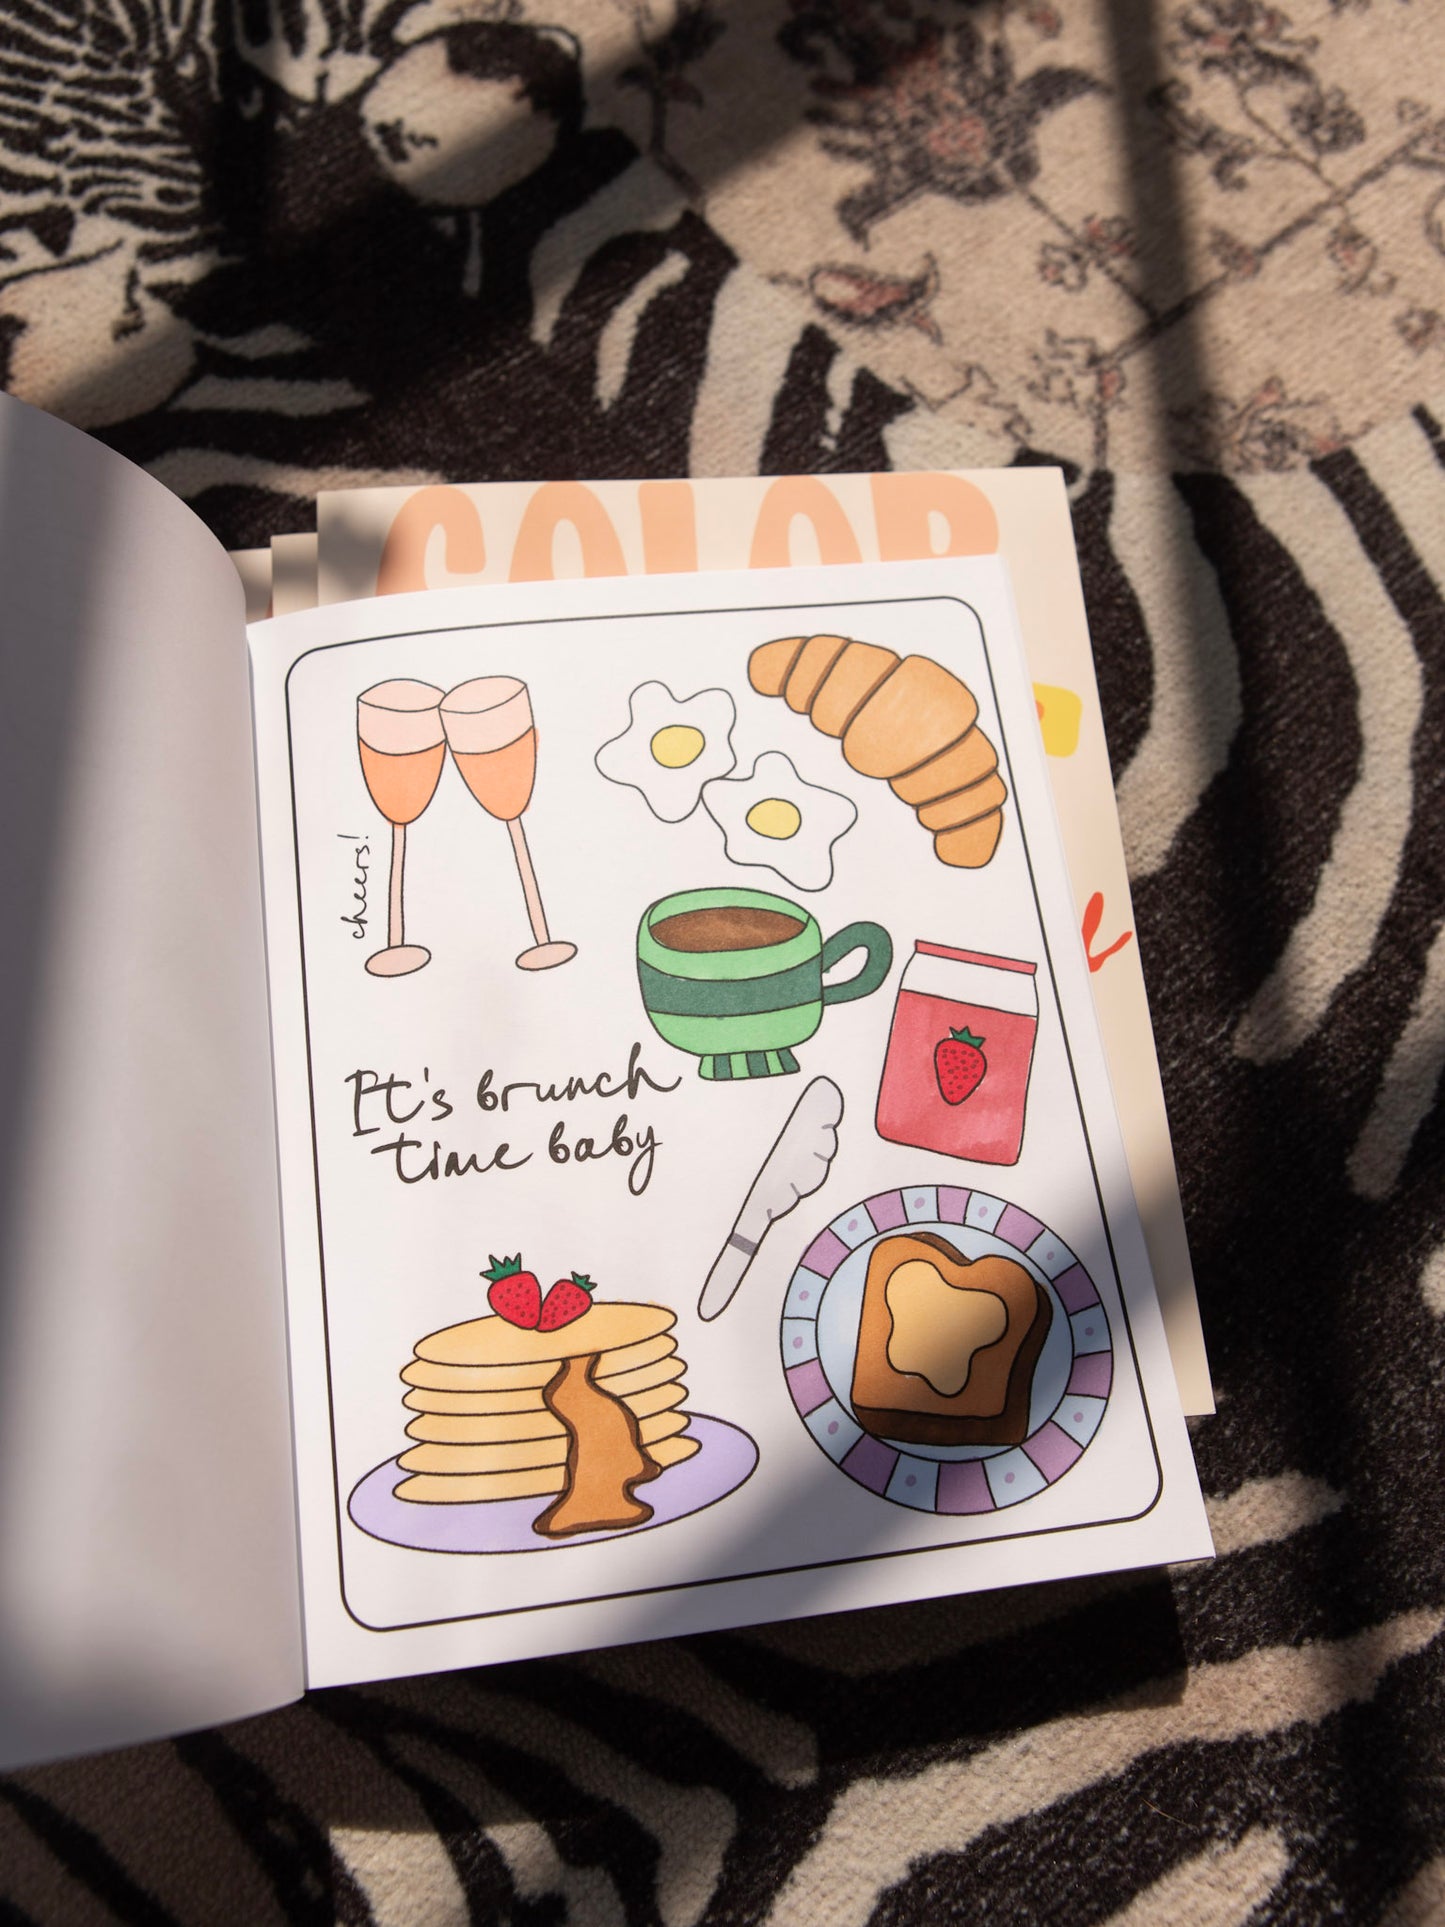 COLOR
cheers!
It's brunch
time baby